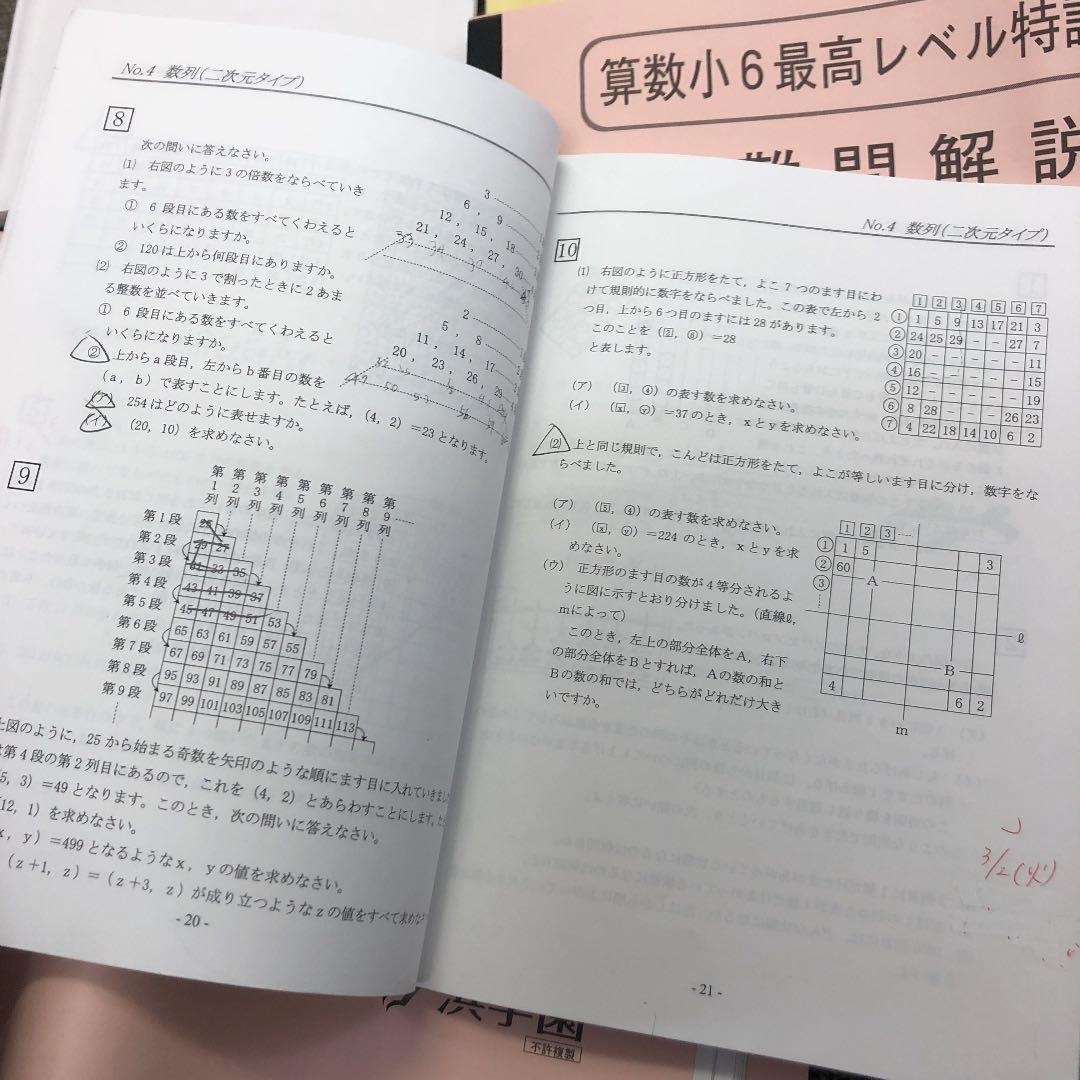 算数小6最高レベル特訓
難問解説
No.4 数列(二次元タイプ)
8
次の問いに答えなさい。
(1) 右図のように3の倍数をならべていき
ます。
① 6段目にある数をすべてくわえると
いくらになりますか。
② 120は上から何段目にありますか。
3
6, 9
12, 15, 18
21, 24, 27, 30
(2) 右図のように3で割ったときに2あま
る整数を並べていきます。
① 6段目にある数をすべてくわえると
いくらになりますか。
2
5, 8
11, 14, 17
20, 23, 26, 29
② 上からa段目,左からb番目の数を
(a,b)で表すことにします。たとえば,(4,2)=23となります。
(ア) 254はどのように表せますか。
(イ) (20,10)を求めなさい。
9
第1列 第2列 第3列 第4列 第5列 第6列 第7列 第8列 第9列 ……
第1段 25
第2段 29 27
第3段 31 33 35
第4段 43 41 39 37
第5段 45 47 49 51 53
第6段 65 63 61 59 57 55
第7段 67 69 71 73 75 77 79
第8段 95 93 91 89 87 85 83 81
第9段 97 99 101 103 105 107 109 111 113
上図のように,25から始まる奇数を矢印のような順にます目に入れていきました
第4段の第2列目にあるので,これを(4,2)とあらわすことにします。
5,3)=49となります。このとき,次の問いに答えなさい。
12,1)を求めなさい。
x,y)=499となるようなx,yの値を求めなさい。
(z+1,z)=(z+3,z)が成り立つようなzの値をすべて求めな
- 20 -
No.4 数列(二次元タイプ)
10
(1) 右図のように正方形をたて,よこ7つのます目にわ
けて規則的に数字をならべました。この表で左から2
つ目,上から6つ目のますには28があります。
このことを(2,⑥)=28
と表します。
(ア) (3,④)の表す数を求めなさい。
(イ) (x,y)=37のとき,xとyを求めなさい。
1 2 3 4 5 6 7
① 1 5 9 13 17 21 3
② 24 25 29 – – 27 7
③ 20 – – – – – 11
④ 16 – – – – – 15
⑤ 12 – – – – – 19
⑥ 8 28 – – – 26 23
⑦ 4 22 18 14 10 6 2
(2) 上と同じ規則で,こんどは正方形をたて,よこが等しいます目に分け,数字をな
らべました。
(ア) (5,④)の表す数を求めなさい。
(イ) (x,y)=224のとき,xとyを求
めなさい。
(ウ) 正方形のます目の数が4等分されるよ
うに図に示すとおり分けました。(直線ℓ,
mによって)
このとき,左上の部分全体をA,右下
の部分全体をBとすれば,Aの数の和と
Bの数の和では,どちらがどれだけ大き
いですか。
1 2 3 ……
① 1 5 3
② 60 A
③
ℓ
B
4 6 2
m
3/2
- 21 -
浜学園
不許複製